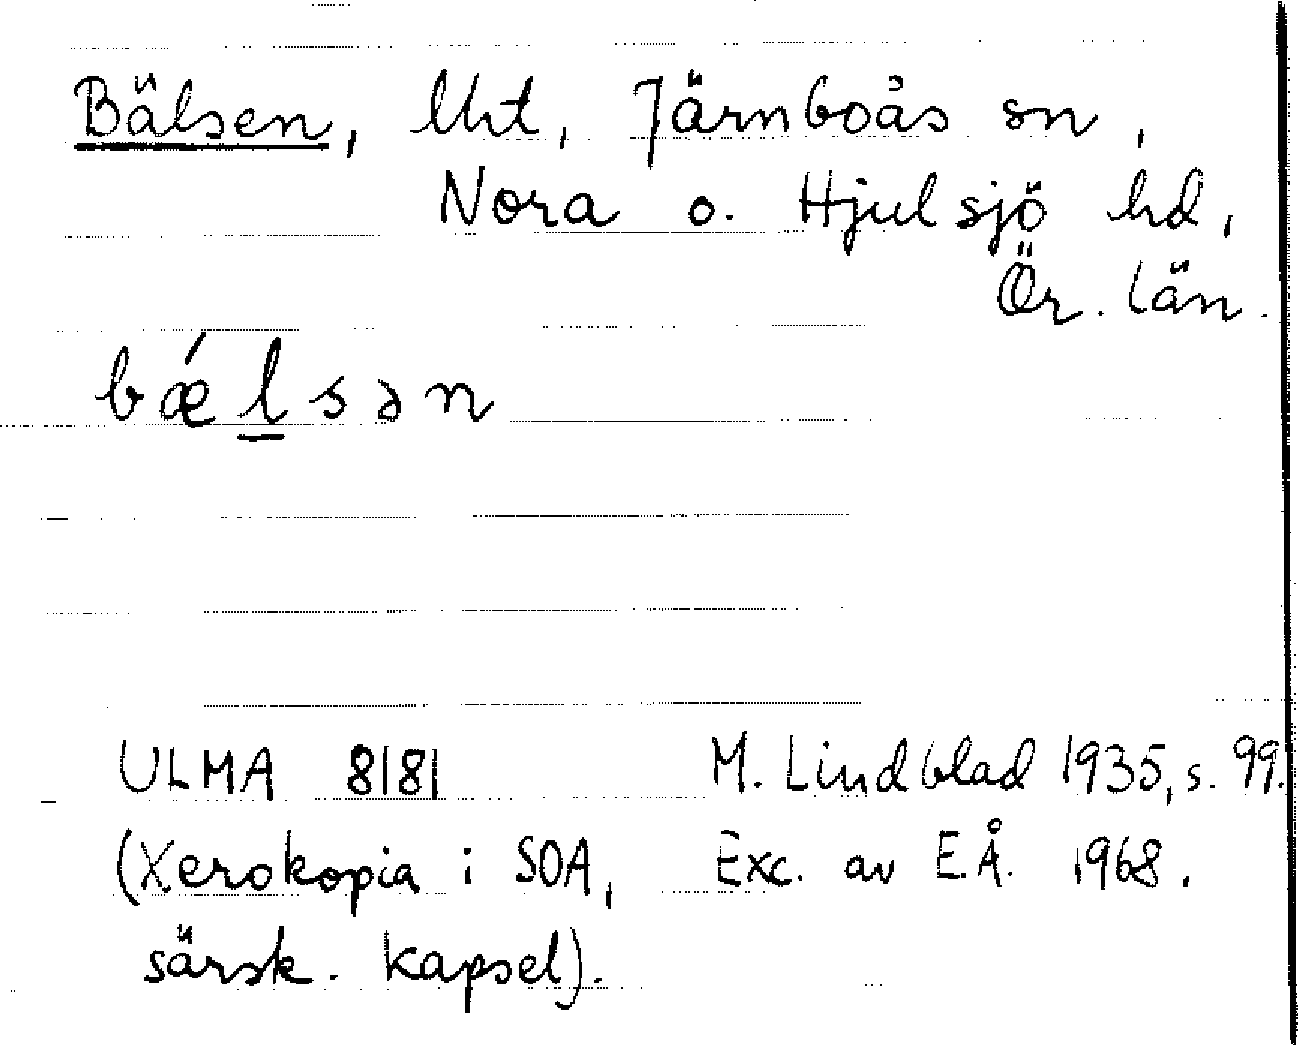 Bälsen, lht, Järnboås sn,
Nora o. Hjulsjö hd,
Ör. län.
bǽl̲sən
ULMA 8181 M. Lindblad 1935, s. 99.
(Xerokopia i SOA, Exc. av E.Å. 1968.
särsk. kapsel).